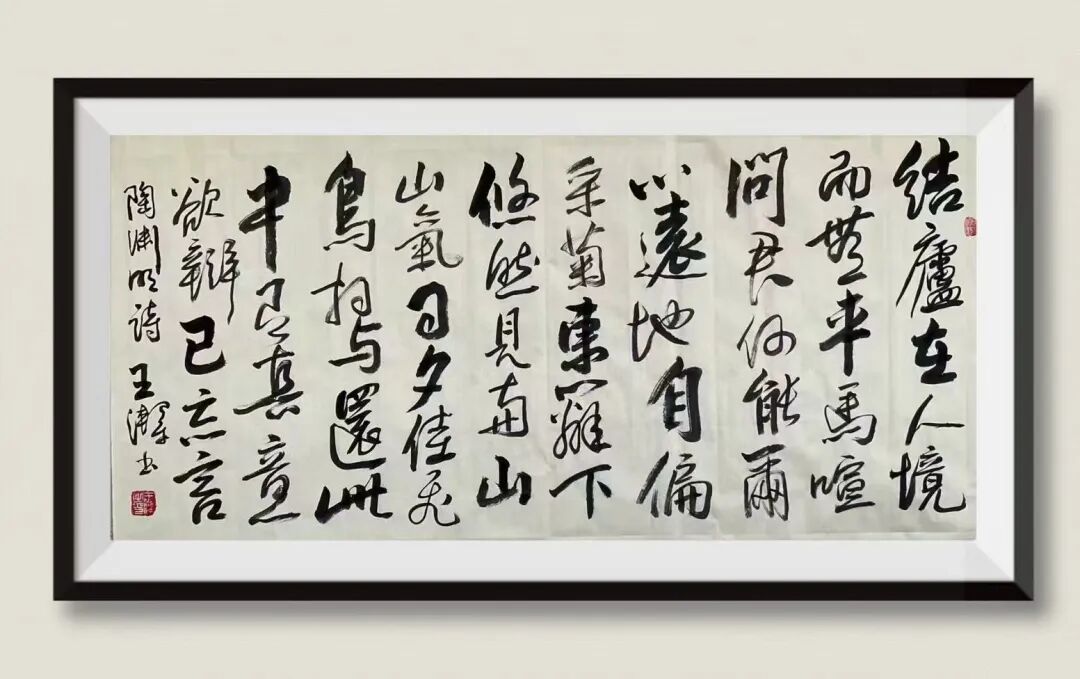 結廬在人境
而無車馬喧
問君何能爾
心遠地自偏
采菊東籬下
悠然見南山
山氣日夕佳飞
鳥相与還此
中有真意
欲辯已忘言
陶渊明詩 王书